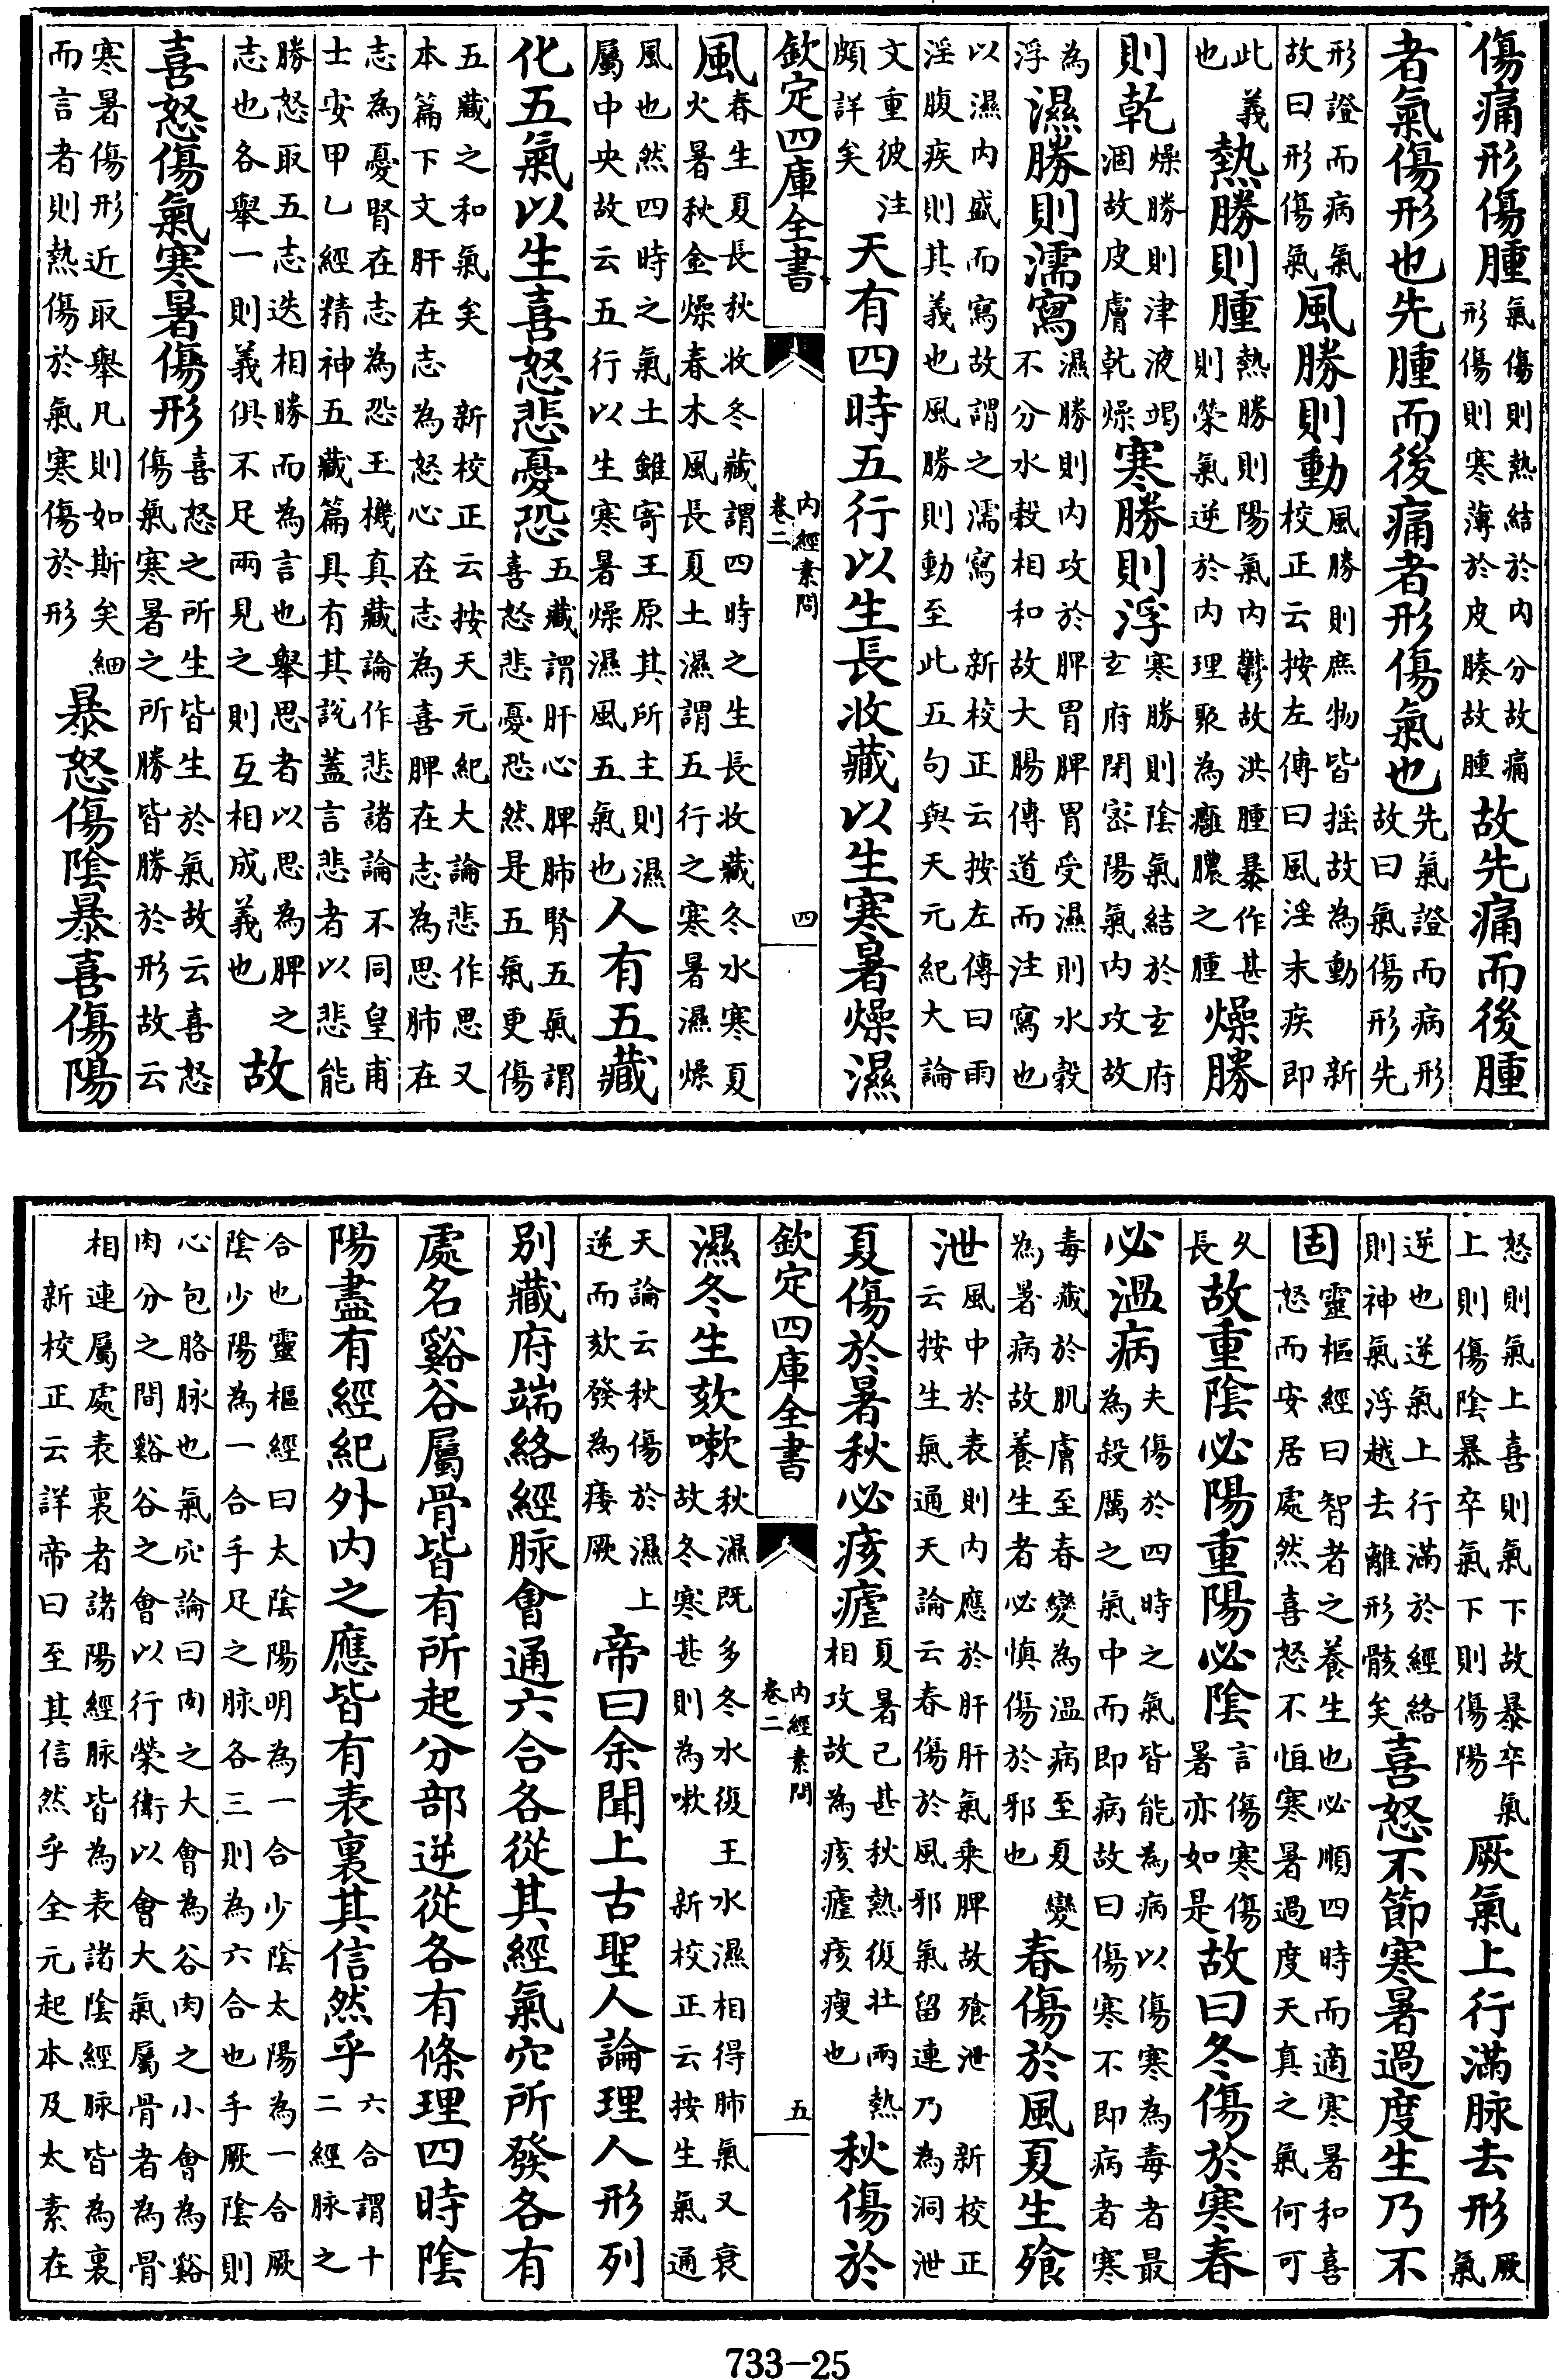 傷痛形傷腫氣傷則熱結於内分故痛形傷則寒薄於皮腠故腫故先痛而後腫
者氣傷形也先腫而後痛者形傷氣也先氣證而病形故曰氣傷形先
形證而病氣故曰形傷氣風勝則動風勝則庶物皆摇故為動 新校正云按左傳曰風淫末疾即
此義也熱勝則腫熱勝則陽氣内鬱故洪腫暴作甚則榮氣逆於内理聚為癰膿之腫燥勝
則乾燥勝則津液竭涸故皮膚乾燥寒勝則浮寒勝則陰氣結於玄府玄府閉宻陽氣内攻故
為浮濕勝則濡寫濕勝則内攻於脾胃脾胃受濕則水穀不分水穀相和故大腸傳道而注寫也
以濕内盛而寫故謂之濡寫 新校正云按左傳曰雨淫腹疾則其義也風勝則動至此五句與天元紀大論
文重彼注頗詳矣 天有四時五行以生長收藏以生寒暑燥濕
欽定四庫全書 内經素問 卷二 四
風春生夏長秋收冬藏謂四時之生長收藏冬水寒夏火暑秋金燥春木風長夏土濕謂五行之寒暑濕燥
風也然四時之氣土雖寄王原其所主則濕屬中央故云五行以生寒暑燥濕風五氣也人有五藏
化五氣以生喜怒悲憂恐五藏謂肝心脾肺腎五氣謂喜怒悲憂恐然是五氣更傷
五藏之和氣矣 新校正云按天元紀大論悲作思又本篇下文肝在志為怒心在志為喜脾在志為思肺在
志為憂腎在志為恐玉機真藏論作悲諸論不同皇甫士安甲乙經精神五藏篇具有其說蓋言悲者以悲能
勝怒取五志迭相勝而為言也舉思者以思為脾之志也各舉一則義俱不足兩見之則互相成義也故
喜怒傷氣寒暑傷形喜怒之所生皆生於氣故云喜怒傷氣寒暑之所勝皆勝於形故云
寒暑傷形近取舉凡則如斯矣細而言者則熱傷於氣寒傷於形暴怒傷陰暴喜傷陽
怒則氣上喜則氣下故暴卒氣上則傷陰暴卒氣下則傷陽厥氣上行滿脉去形厥氣
逆也逆氣上行滿於經絡則神氣浮越去離形骸矣喜怒不節寒暑過度生乃不
固靈樞經曰智者之養生也必順四時而適寒暑和喜怒而安居處然喜怒不恒寒暑過度天真之氣何可
久長故重陰必陽重陽必陰言傷寒傷暑亦如是故曰冬傷於寒春
必温病夫傷於四時之氣皆能為病以傷寒為毒者最為殺厲之氣中而即病故曰傷寒不即病者寒
毒藏於肌膚至春變為温病至夏變為暑病故養生者必慎傷於邪也春傷於風夏生飱
泄風中於表則内應於肝肝氣乗脾故飱泄 新校正云按生氣通天論云春傷於風邪氣留連乃為洞泄
夏傷於暑秋必痎瘧夏暑已甚秋熱復壯兩熱相攻故為痎瘧痎瘦也秋傷於
欽定四庫全書 内經素問 卷二 五
濕冬生欬嗽秋濕既多冬水復王水濕相得肺氣又衰故冬寒甚則為嗽 新校正云按生氣通
天論云秋傷於濕上逆而欬發為痿厥帝曰余聞上古聖人論理人形列
别藏府端絡經脉會通六合各從其經氣穴所發各有
處名谿谷屬骨皆有所起分部逆從各有條理四時陰
陽盡有經紀外内之應皆有表裏其信然乎六合謂十二經脉之
合也靈樞經曰太陰陽明為一合少陰太陽為一合厥陰少陽為一合手足之脉各三則為六合也手厥陰則
心包胳脉也氣穴論曰肉之大會為谷肉之小會為谿肉分之間谿谷之會以行榮衛以會大氣屬骨者為骨
相連屬處表裏者諸陽經脉皆為表諸陰經脉皆為裏 新校正云詳帝曰至其信然乎全元起本及太素在
733-25